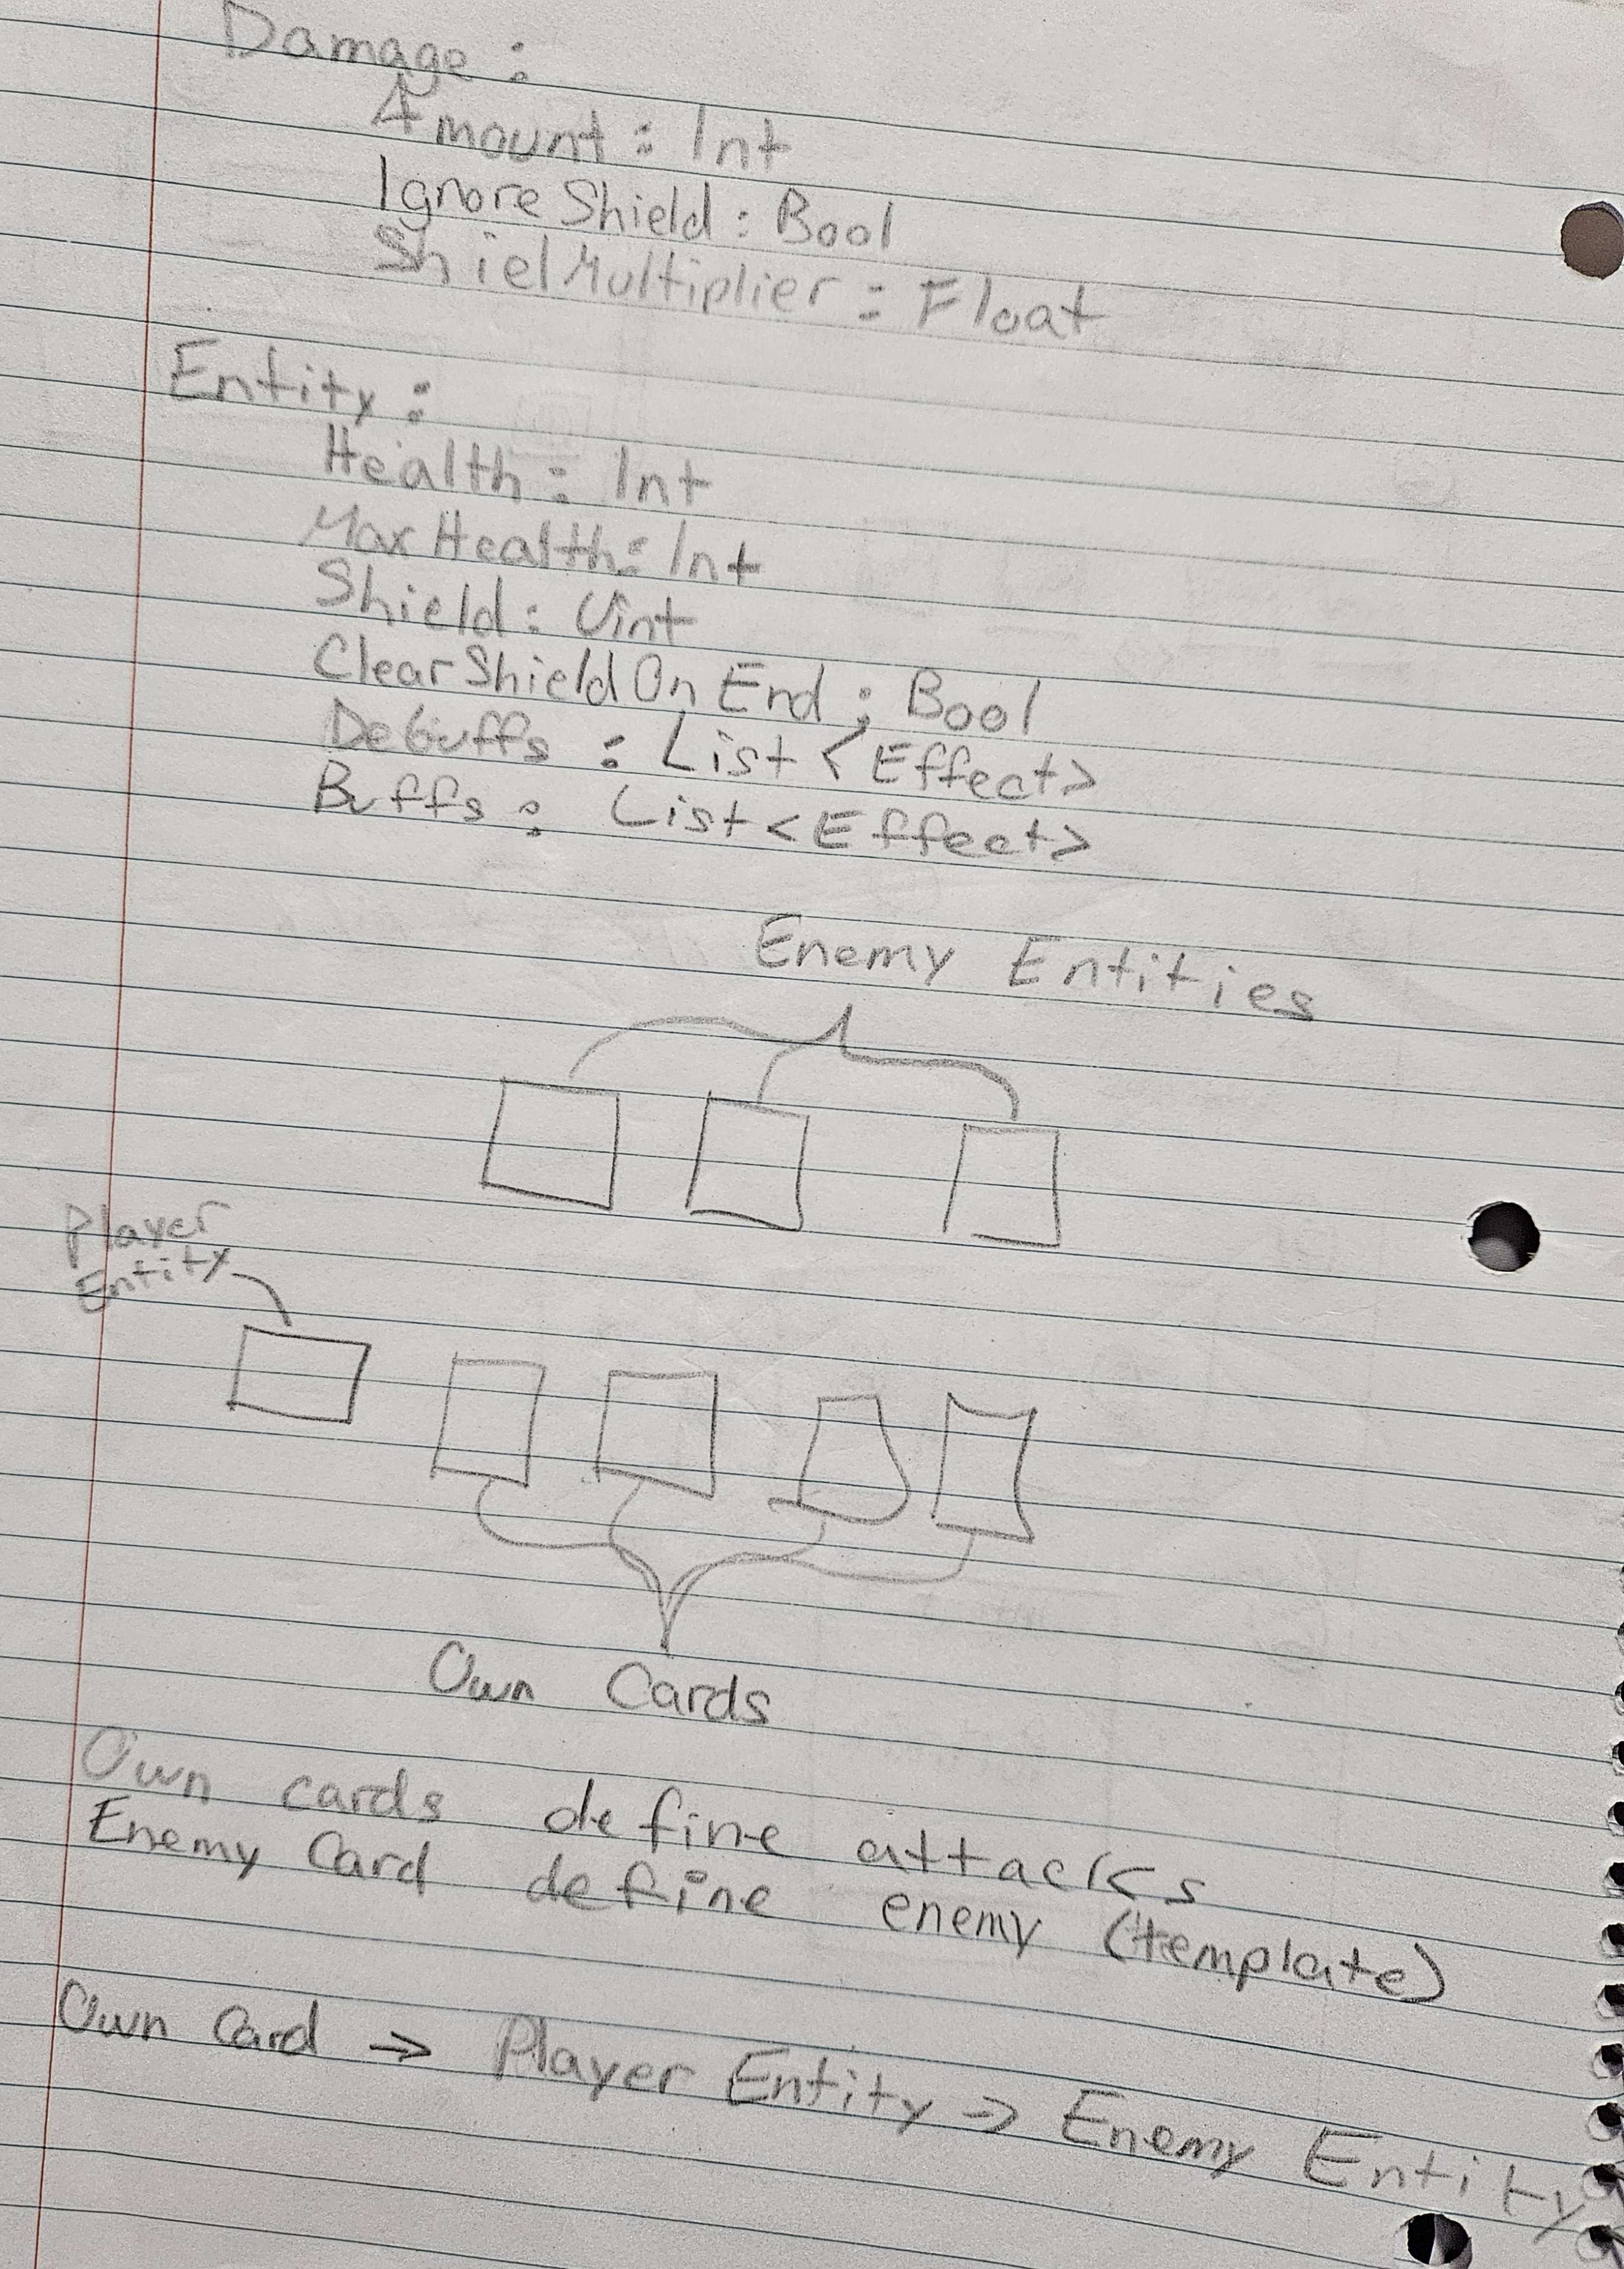 Damage :
Amount : Int
Ignore Shield : Bool
ShielMultiplier : Float
Entity :
Health : Int
Max Health : Int
Shield : Uint
Clear Shield On End : Bool
Debuffs : List <Effect>
Buffs : List <Effect>
Enemy Entities
Player
Entity
Own Cards
Own cards define attacks
Enemy Card define enemy (template)
Own Card → Player Entity → Enemy Entity